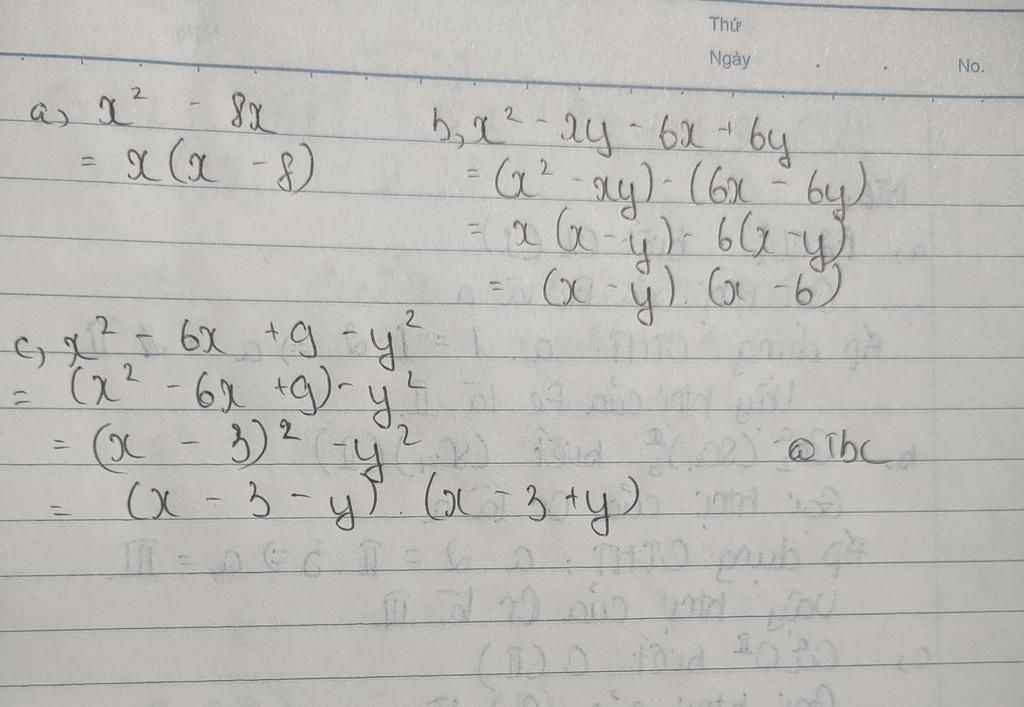 Thứ
Ngày . . No.
a, x² - 8x
= x(x - 8)
b, x² - xy - 6x + 6y
= (x² - xy) - (6x - 6y)
= x(x - y) - 6(x - y)
= (x - y).(x - 6)
c, x² - 6x + 9 - y²
= (x² - 6x + 9) - y²
= (x - 3)² - y²
= (x - 3 - y).(x - 3 + y)
@Tbc